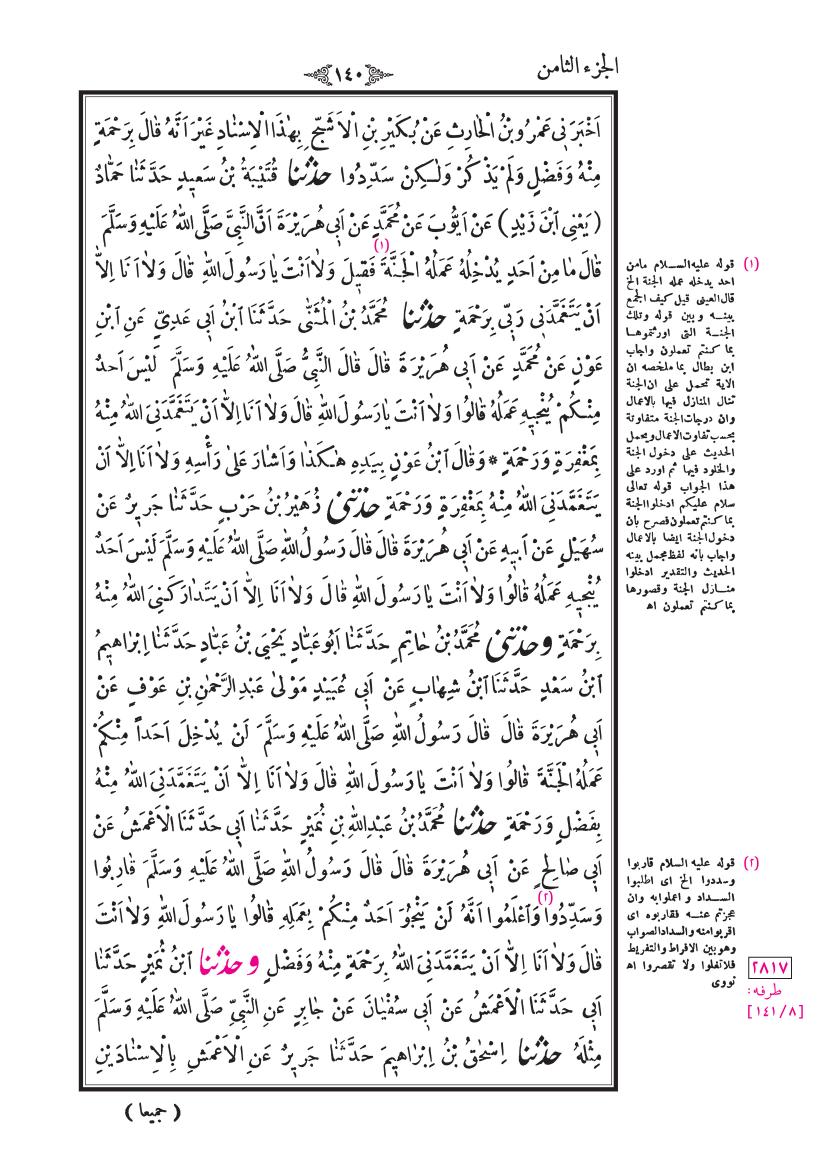 الجزء الثامن
١٤٠
اَخْبَرَنٖى عَمْرُو بْنُ الْحَارِثِ عَنْ بُكَيْرِ بْنِ الْاَشَجِّ بِهٰذَا الْاِسْنَادِ غَيْرَ اَنَّهُ قَالَ بِرَحْمَةٍ
مِنْهُ وَفَضْلٍ وَلَمْ يَذْكُرْ وَلٰكِنْ سَدِّدُوا حَدَّثَنَا قُتَيْبَةُ بْنُ سَعٖيدٍ حَدَّثَنَا حَمَّادٌ
(يَعْنٖى ابْنَ زَيْدٍ) عَنْ اَيُّوبَ عَنْ مُحَمَّدٍ عَنْ اَبٖى هُرَيْرَةَ اَنَّ النَّبِىَّ صَلَّى اللهُ عَلَيْهِ وَسَلَّمَ
قَالَ مَا مِنْ اَحَدٍ يُدْخِلُهُ عَمَلُهُ الْجَنَّةَ (١) فَقٖيلَ وَلَا اَنْتَ يَا رَسُولَ اللهِ قَالَ وَلَا اَنَا اِلَّا
اَنْ يَتَغَمَّدَنٖى رَبّٖى بِرَحْمَةٍ حَدَّثَنَا مُحَمَّدُ بْنُ الْمُثَنّٰى حَدَّثَنَا ابْنُ اَبٖى عَدِىٍّ عَنِ ابْنِ
عَوْنٍ عَنْ مُحَمَّدٍ عَنْ اَبٖى هُرَيْرَةَ قَالَ قَالَ النَّبِىُّ صَلَّى اللهُ عَلَيْهِ وَسَلَّمَ لَيْسَ اَحَدٌ
مِنْكُمْ يُنْجٖيهِ عَمَلُهُ قَالُوا وَلَا اَنْتَ يَا رَسُولَ اللهِ قَالَ وَلَا اَنَا اِلَّا اَنْ يَتَغَمَّدَنِىَ اللهُ مِنْهُ
بِمَغْفِرَةٍ وَرَحْمَةٍ * وَقَالَ ابْنُ عَوْنٍ بِيَدِهِ هٰكَذَا وَاَشَارَ عَلٰى رَأْسِهِ وَلَا اَنَا اِلَّا اَنْ
يَتَغَمَّدَنِىَ اللهُ مِنْهُ بِمَغْفِرَةٍ وَرَحْمَةٍ حَدَّثَنٖى زُهَيْرُ بْنُ حَرْبٍ حَدَّثَنَا جَرٖيرٌ عَنْ
سُهَيْلٍ عَنْ اَبٖيهِ عَنْ اَبٖى هُرَيْرَةَ قَالَ قَالَ رَسُولُ اللهِ صَلَّى اللهُ عَلَيْهِ وَسَلَّمَ لَيْسَ اَحَدٌ
يُنْجٖيهِ عَمَلُهُ قَالُوا وَلَا اَنْتَ يَا رَسُولَ اللهِ قَالَ وَلَا اَنَا اِلَّا اَنْ يَتَدَارَكَنِىَ اللهُ مِنْهُ
بِرَحْمَةٍ وَحَدَّثَنٖى مُحَمَّدُ بْنُ حَاتِمٍ حَدَّثَنَا اَبُو عَبَّادٍ يَحْيَى بْنُ عَبَّادٍ حَدَّثَنَا اِبْرَاهٖيمُ
ابْنُ سَعْدٍ حَدَّثَنَا ابْنُ شِهَابٍ عَنْ اَبٖى عُبَيْدٍ مَوْلٰى عَبْدِ الرَّحْمٰنِ بْنِ عَوْفٍ عَنْ
اَبٖى هُرَيْرَةَ قَالَ قَالَ رَسُولُ اللهِ صَلَّى اللهُ عَلَيْهِ وَسَلَّمَ لَنْ يُدْخِلَ اَحَداً مِنْكُمْ
عَمَلُهُ الْجَنَّةَ قَالُوا وَلَا اَنْتَ يَا رَسُولَ اللهِ قَالَ وَلَا اَنَا اِلَّا اَنْ يَتَغَمَّدَنِىَ اللهُ مِنْهُ
بِفَضْلٍ وَرَحْمَةٍ حَدَّثَنَا مُحَمَّدُ بْنُ عَبْدِ اللهِ بْنِ نُمَيْرٍ حَدَّثَنَا اَبٖى حَدَّثَنَا الْاَعْمَشُ عَنْ
اَبٖى صَالِحٍ عَنْ اَبٖى هُرَيْرَةَ قَالَ قَالَ رَسُولُ اللهِ صَلَّى اللهُ عَلَيْهِ وَسَلَّمَ قَارِبُوا
وَسَدِّدُوا (٢) وَاعْلَمُوا اَنَّهُ لَنْ يَنْجُوَ اَحَدٌ مِنْكُمْ بِعَمَلِهِ قَالُوا يَا رَسُولَ اللهِ وَلَا اَنْتَ
قَالَ وَلَا اَنَا اِلَّا اَنْ يَتَغَمَّدَنِىَ اللهُ بِرَحْمَةٍ مِنْهُ وَفَضْلٍ وَحَدَّثَنَا ابْنُ نُمَيْرٍ حَدَّثَنَا
اَبٖى حَدَّثَنَا الْاَعْمَشُ عَنْ اَبٖى سُفْيَانَ عَنْ جَابِرٍ عَنِ النَّبِىِّ صَلَّى اللهُ عَلَيْهِ وَسَلَّمَ
مِثْلَهُ حَدَّثَنَا اِسْحٰقُ بْنُ اِبْرَاهٖيمَ حَدَّثَنَا جَرٖيرٌ عَنِ الْاَعْمَشِ بِالْاِسْنَادَيْنِ
(جميعا)
(١) قوله عليه السلام مامن
احد يدخله عمله الجنة الخ
قال العينى قيل كيف الجمع
بينه وبين قوله وتلك
الجنة التى اورثتموها
بما كنتم تعملون واجاب
ابن بطال بما ملخصه ان
الاية تحمل على ان الجنة
تنال المنازل فيها بالاعمال
وان درجات الجنة متفاوتة
بحسب تفاوت الاعمال ويحمل
الحديث على دخول الجنة
والخلود فيها ثم اورد على
هذا الجواب قوله تعالى
سلام عليكم ادخلوا الجنة
بما كنتم تعملون فصرح بان
دخول الجنة ايضا بالاعمال
واجاب بانه لفظ مجمل بينه
الحديث والتقدير ادخلوا
منازل الجنة وقصورها
بما كنتم تعملون اه
(٢) قوله عليه السلام قاربوا
وسددوا الخ اى اطلبوا
السداد واعملوا به وان
عجزتم عنه فقاربوه اى
اقربوا منه والسداد الصواب
وهو بين الافراط والتفريط
فلا تغلوا ولا تقصروا اه
نووى
٢٨١٧
طرفه:
[١٤١/٨]